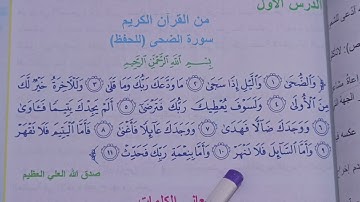 الدرس الأول
من القرآن الكريم
سورة الضحى (للحفظ)
بِسْمِ اللَّهِ الرَّحْمَٰنِ الرَّحِيمِ
﴿ وَٱلضُّحَىٰ ١ وَٱلَّيْلِ إِذَا سَجَىٰ ٢ مَا وَدَّعَكَ رَبُّكَ وَمَا قَلَىٰ ٣ وَلَلْآخِرَةُ خَيْرٌ لَّكَ
مِنَ ٱلْأُولَىٰ ٤ وَلَسَوْفَ يُعْطِيكَ رَبُّكَ فَتَرْضَىٰ ٥ أَلَمْ يَجِدْكَ يَتِيمًا فَـَٔاوَىٰ
٦ وَوَجَدَكَ ضَآلًّا فَهَدَىٰ ٧ وَوَجَدَكَ عَآئِلًا فَأَغْنَىٰ ٨ فَأَمَّا ٱلْيَتِيمَ فَلَا تَقْهَرْ
٩ وَأَمَّا ٱلسَّآئِلَ فَلَا تَنْهَرْ ١٠ وَأَمَّا بِنِعْمَةِ رَبِّكَ فَحَدِّثْ ١١ ﴾
صدق الله العلي العظيم
معاني الكلمات